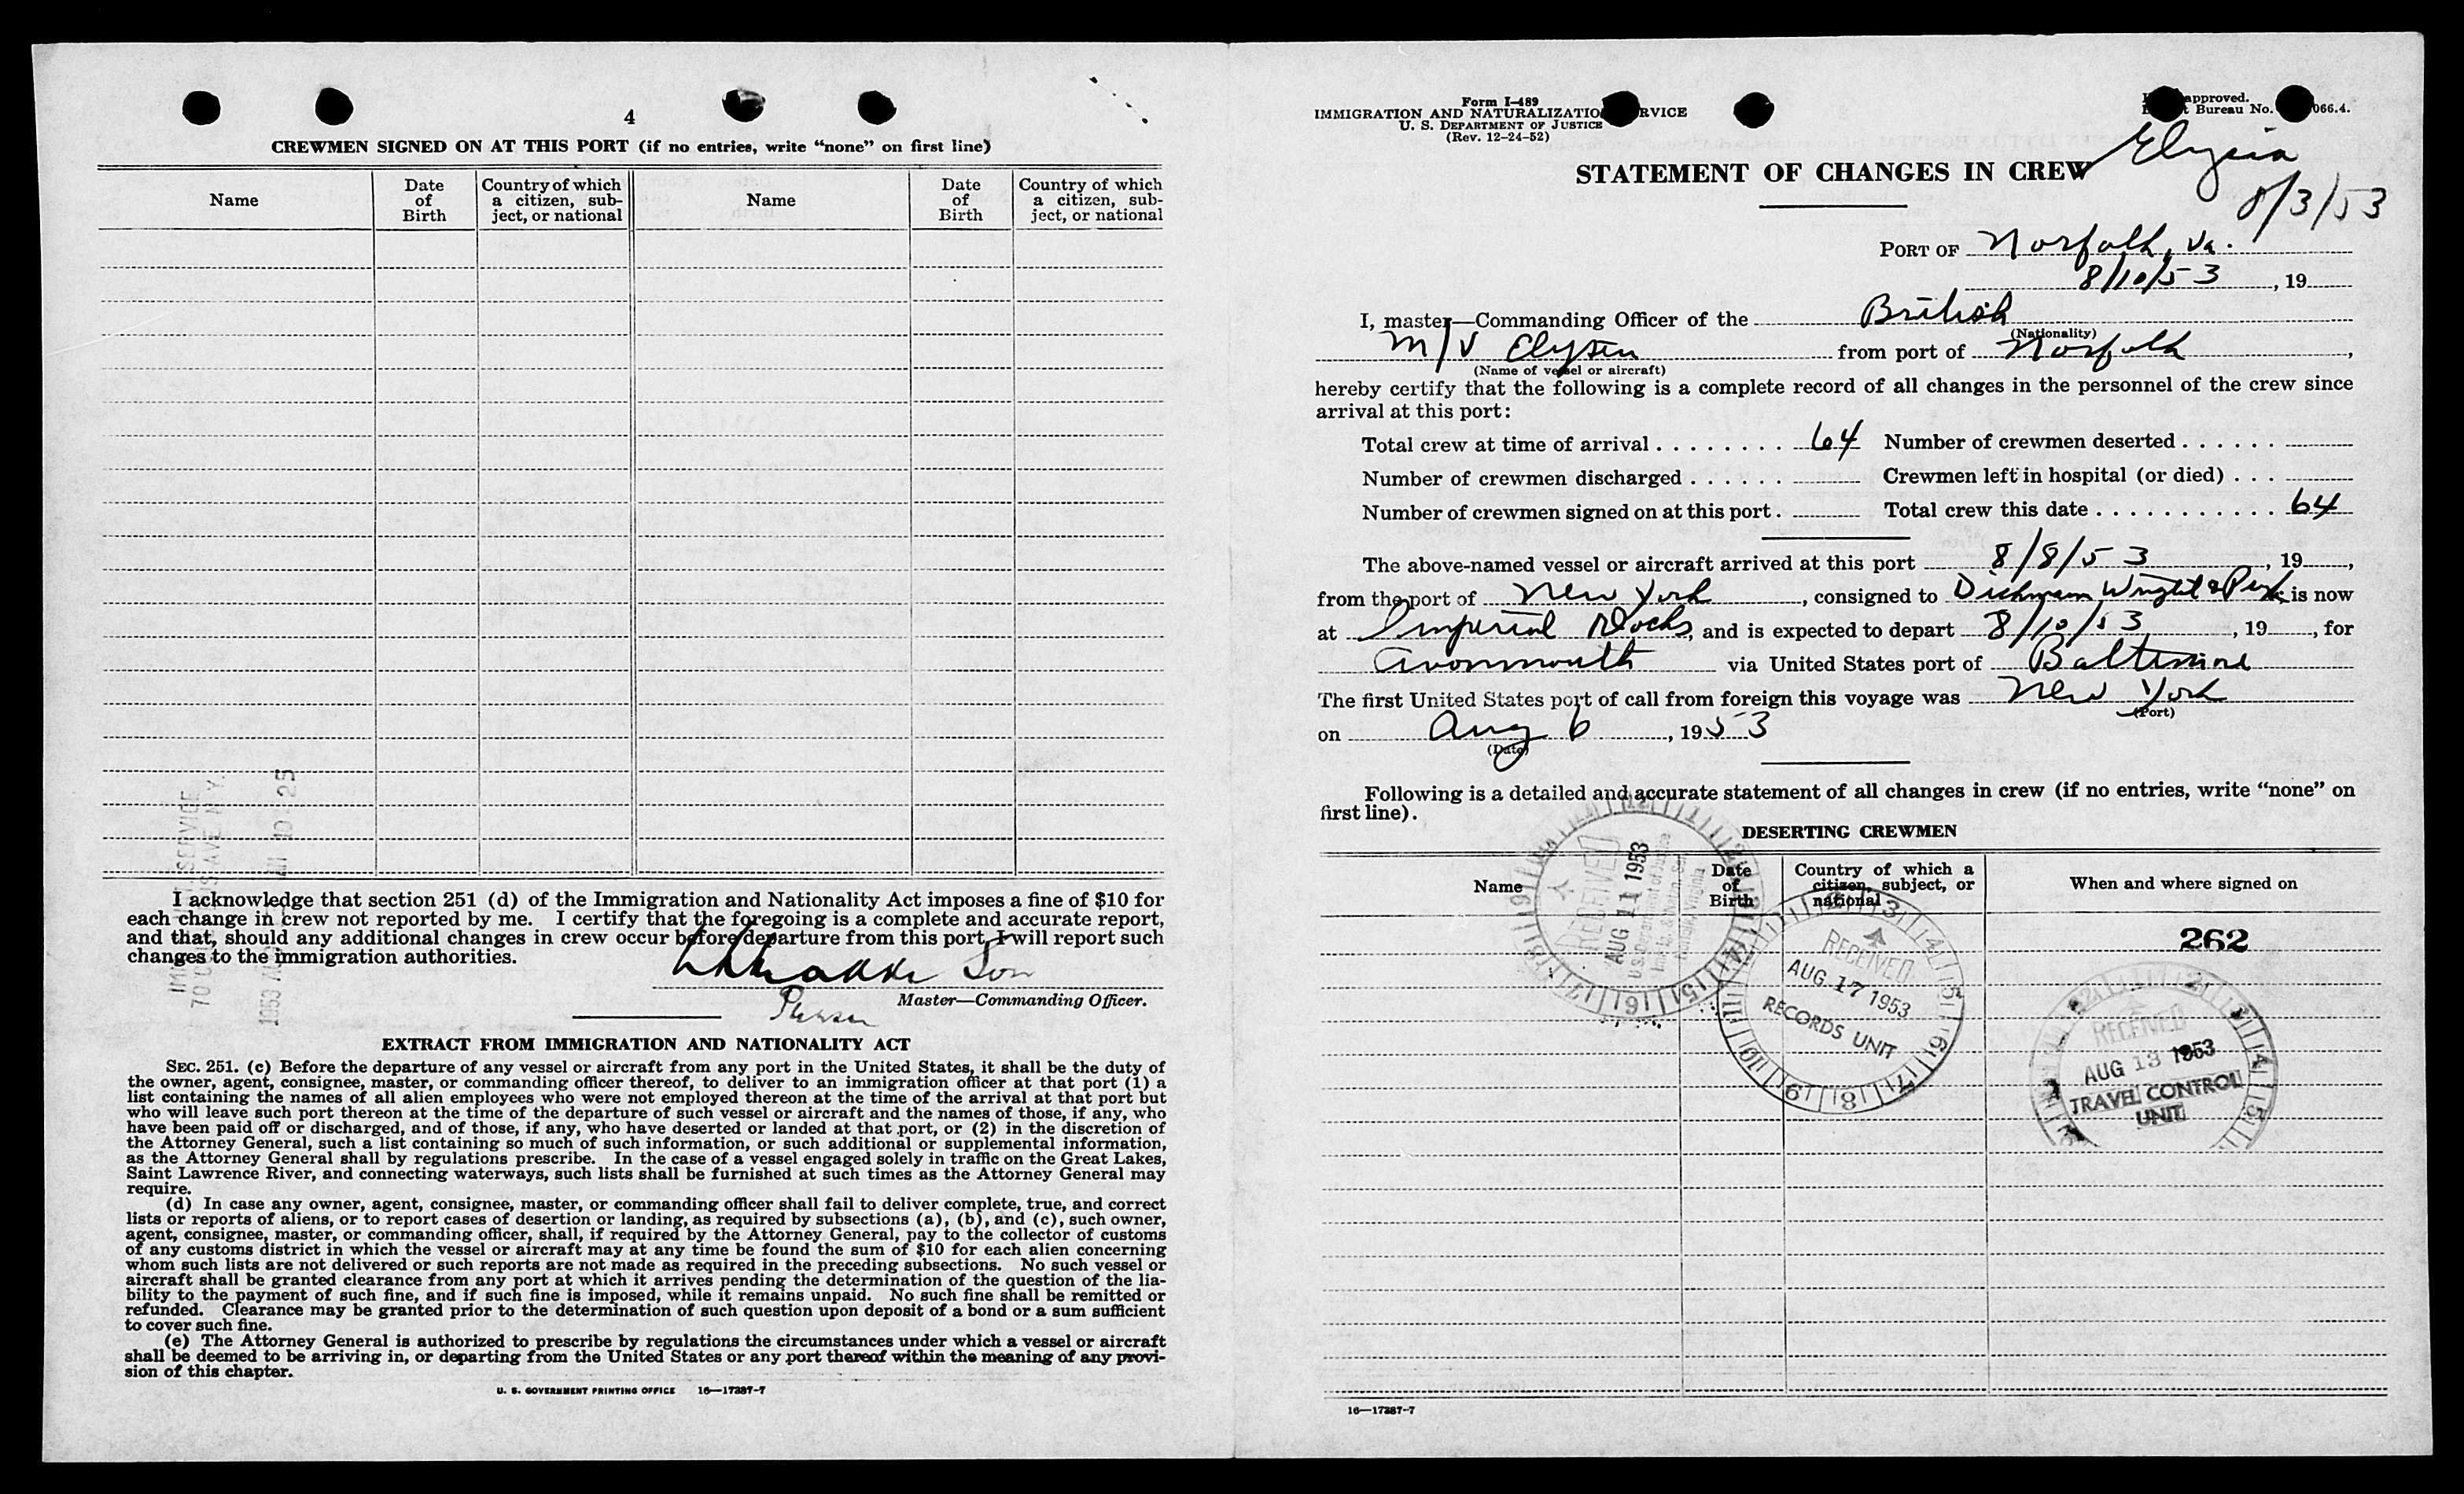 4
CREWMEN SIGNED ON AT THIS PORT (if no entries, write “none” on first line)
Name
Date of Birth
Country of which a citizen, sub-ject, or national
Name
Date of Birth
Country of which a citizen, sub-ject, or national
I acknowledge that section 251 (d) of the Immigration and Nationality Act imposes a fine of $10 for
each change in crew not reported by me. I certify that the foregoing is a complete and accurate report,
and that, should any additional changes in crew occur before departure from this port, I will report such
changes to the immigration authorities.
Master—Commanding Officer.
EXTRACT FROM IMMIGRATION AND NATIONALITY ACT
SEC. 251. (c) Before the departure of any vessel or aircraft from any port in the United States, it shall be the duty of
the owner, agent, consignee, master, or commanding officer thereof, to deliver to an immigration officer at that port (1) a
list containing the names of all alien employees who were not employed thereon at the time of the arrival at that port but
who will leave such port thereon at the time of the departure of such vessel or aircraft and the names of those, if any, who
have been paid off or discharged, and of those, if any, who have deserted or landed at that port, or (2) in the discretion of
the Attorney General, such a list containing so much of such information, or such additional or supplemental information,
as the Attorney General shall by regulations prescribe. In the case of a vessel engaged solely in traffic on the Great Lakes,
Saint Lawrence River, and connecting waterways, such lists shall be furnished at such times as the Attorney General may
require.
(d) In case any owner, agent, consignee, master, or commanding officer shall fail to deliver complete, true, and correct
lists or reports of aliens, or to report cases of desertion or landing, as required by subsections (a), (b), and (c), such owner,
agent, consignee, master, or commanding officer, shall, if required by the Attorney General, pay to the collector of customs
of any customs district in which the vessel or aircraft may at any time be found the sum of $10 for each alien concerning
whom such lists are not delivered or such reports are not made as required in the preceding subsections. No such vessel or
aircraft shall be granted clearance from any port at which it arrives pending the determination of the question of the lia-
bility to the payment of such fine, and if such fine is imposed, while it remains unpaid. No such fine shall be remitted or
refunded. Clearance may be granted prior to the determination of such question upon deposit of a bond or a sum sufficient
to cover such fine.
(e) The Attorney General is authorized to prescribe by regulations the circumstances under which a vessel or aircraft
shall be deemed to be arriving in, or departing from the United States or any port thereof within the meaning of any provi-
sion of this chapter.
U. S. GOVERNMENT PRINTING OFFICE 16—17387-7
Form I-489
IMMIGRATION AND NATURALIZATIO RVICE
U. S. DEPARTMENT OF JUSTICE
(Rev. 12-24-52)
approved.
Bureau No. 066.4.
Elysia
8/3/53
STATEMENT OF CHANGES IN CREW
PORT OF Norfolk, Va.
8/10/53, 19
I, master—Commanding Officer of the British
(Nationality)
M/V Elysia from port of Norfolk,
(Name of vessel or aircraft)
hereby certify that the following is a complete record of all changes in the personnel of the crew since
arrival at this port:
Total crew at time of arrival . . . . . . . . 64 Number of crewmen deserted . . . . . .
Number of crewmen discharged . . . . . . Crewmen left in hospital (or died) . . .
Number of crewmen signed on at this port . Total crew this date . . . . . . . . . . . 64
The above-named vessel or aircraft arrived at this port 8/8/53, 19 ,
from the port of New York, consigned to Dichmann Wright & Pugh is now
at Imperial Docks, and is expected to depart 8/10/53, 19 , for
Avonmouth via United States port of Baltimore
The first United States port of call from foreign this voyage was New York
(Port)
on Aug 6, 1953
(Date)
Following is a detailed and accurate statement of all changes in crew (if no entries, write “none” on
first line).
DESERTING CREWMEN
Name
Date of Birth
Country of which a citizen, subject, or national
When and where signed on
262
RECEIVED
AUG 11 1953
RECEIVED
AUG 17 1953
RECORDS UNIT
RECEIVED
AUG 13 1953
TRAVEL CONTROL
UNIT
16—17387-7